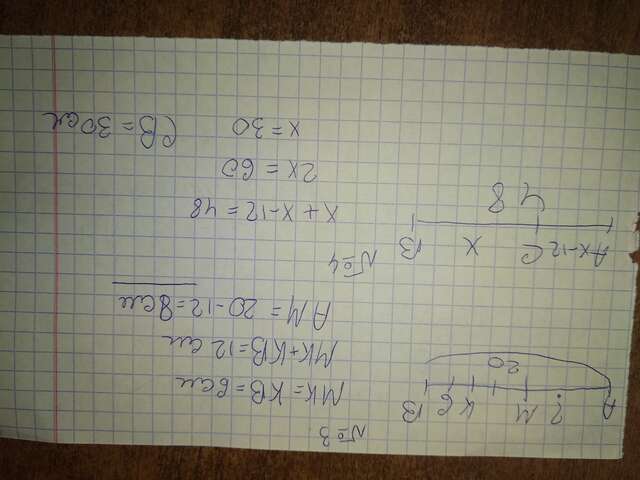 №3
A ? M K 6 B
20
MK = KB = 6 см
MK + KB = 12 см
AM = 20 - 12 = 8 см
№4
A x-12 C x B
48
x + x - 12 = 48
2x = 60
x = 30
CB = 30 см